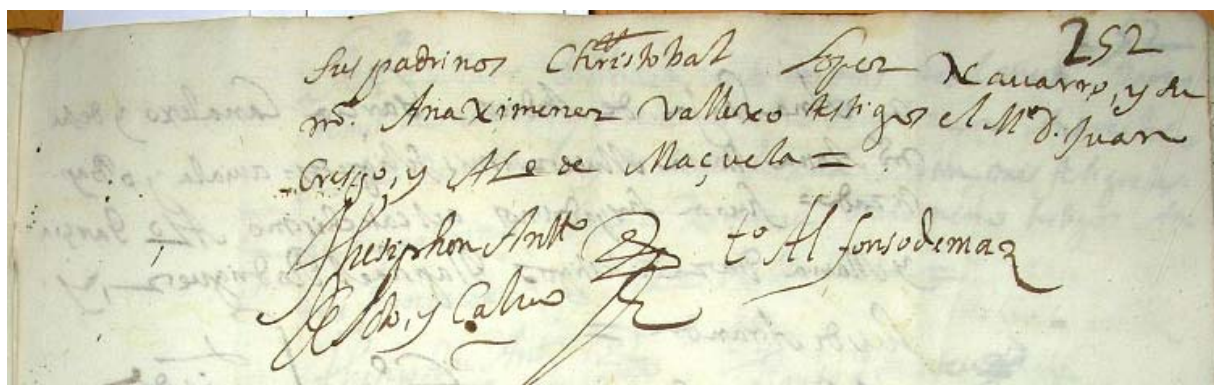 252
sus padrinos Christobal Lopez Navarro, y su
mr. Ana Ximenez Vallexo testigos el Mro D. Juan
Crespo, y Ale de Maçuela =
Thesiphon Antto to Alfonso de maz
y Calvo